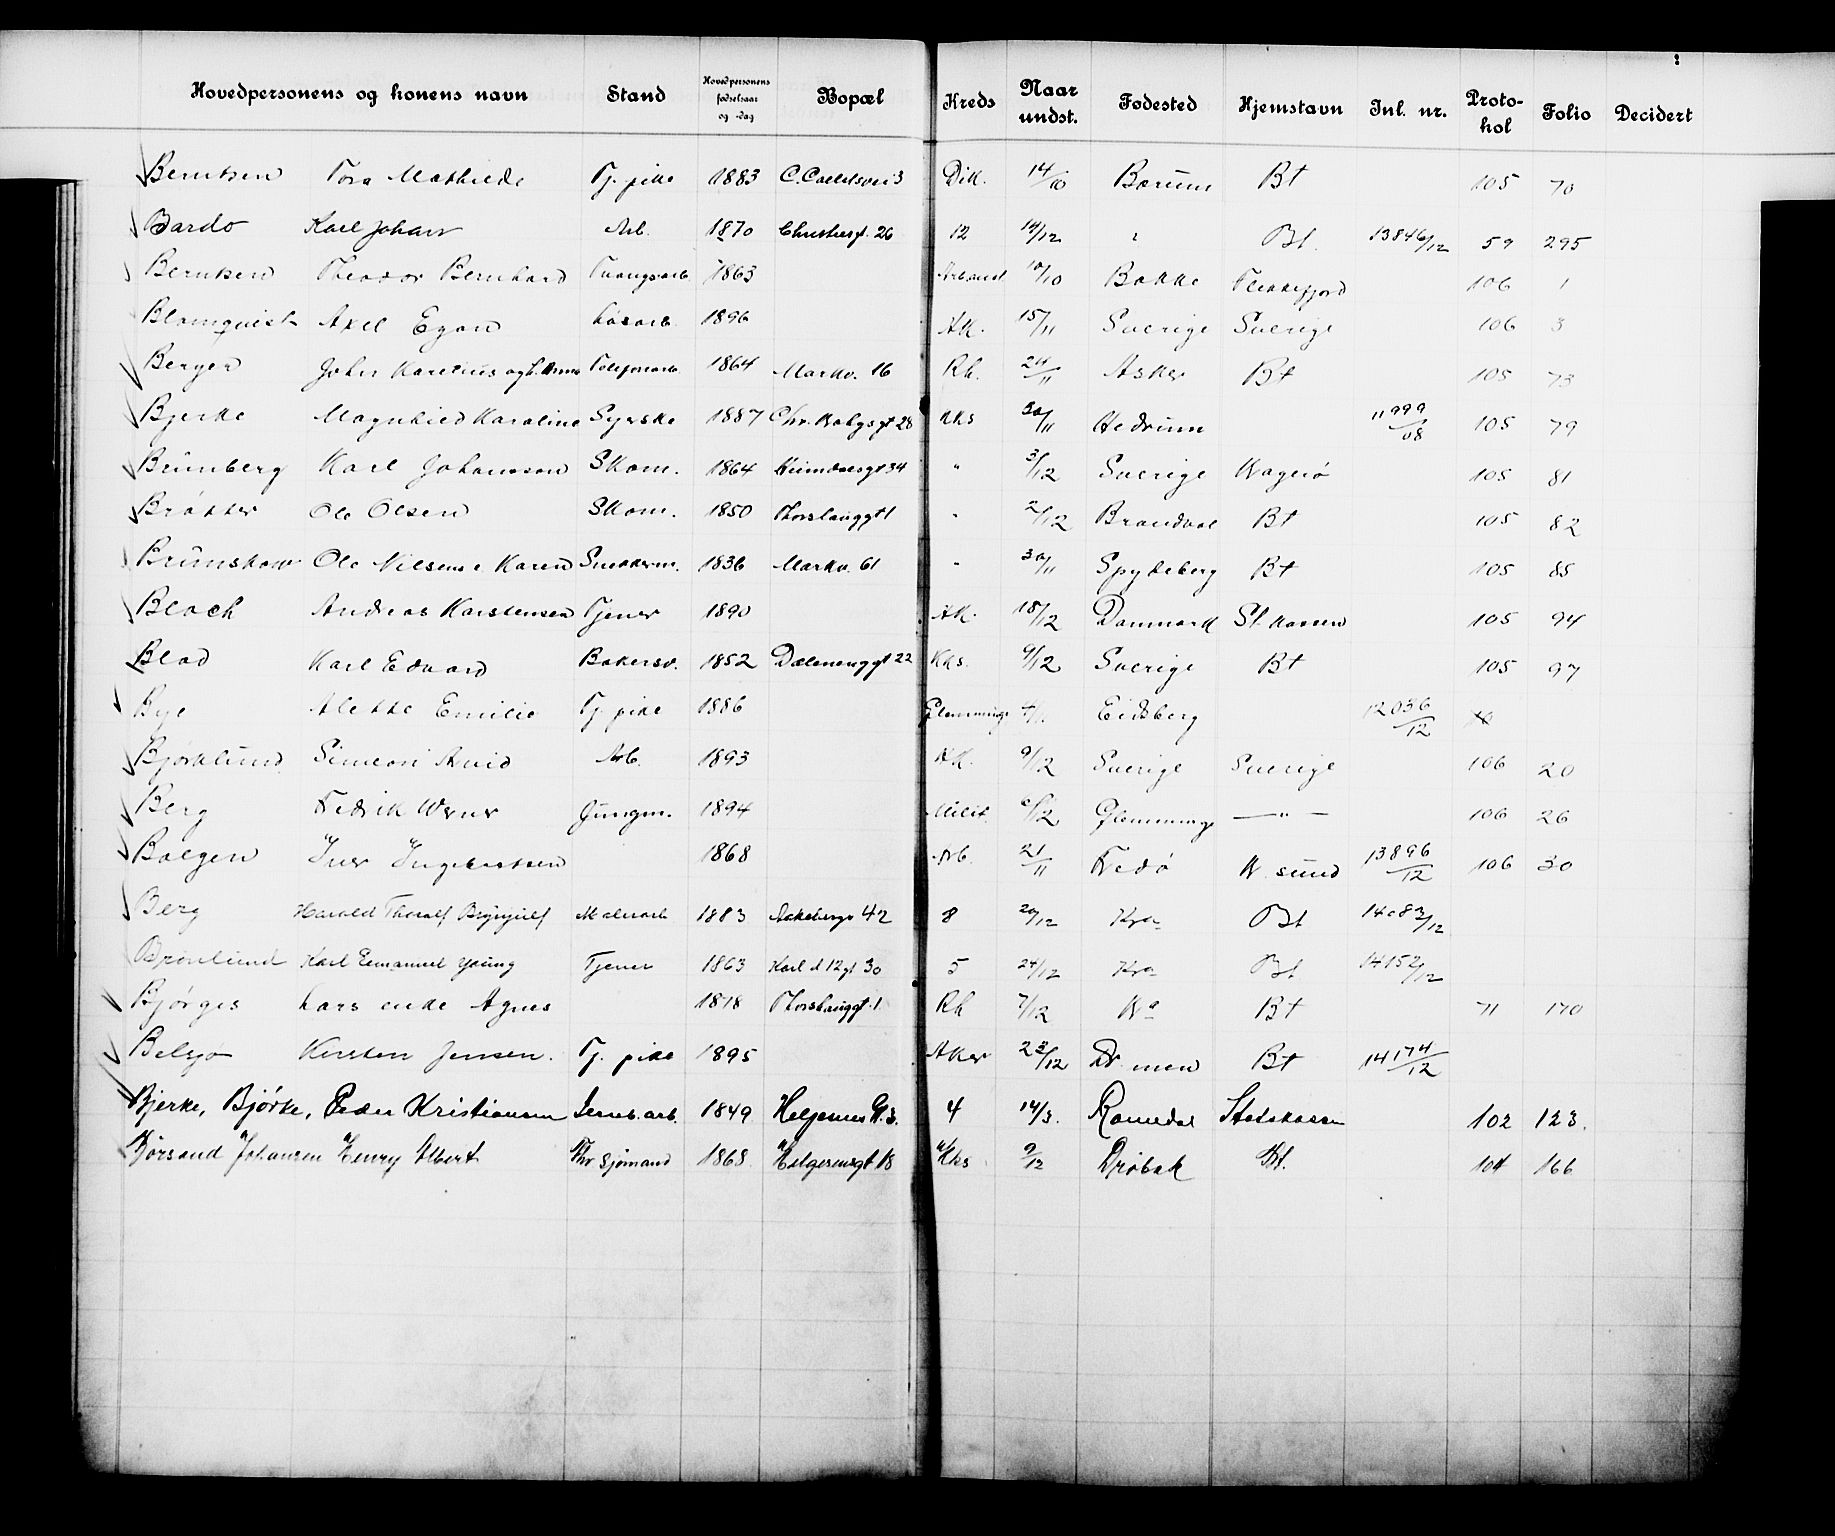 Hovedpersonens og konens navn Stand Hovedpersonens fødselsaar og -dag Bopæl Kreds Naar undst. Fødested Hjemstavn Inl. nr. Proto-kol Folio Decidert
Berntsen Tora Mathilde Tj. pike 1883 Dik. 14/10 Bærum Bt 105 70
Bardo Karl Johan Arb. 1870 Christiesgt. 26 12 14/12 Bt. 13846/12 59 295
Berntsen Theodor Bernhard Tvangsarb. 1863 10/10 Bakke Flekkefjord 106 1
Blomquist Axel Egon Løsarb. 1896 AK. 15/11 Sverige Sverige 106 3
Berger John Karelius og h. Anna Telefonarb. 1864 Markv. 16 Rh. 24/11 Asker Bt 105 73
Bjerke Magnhild Karoline Syerske 1887 Chr. Krohgsgt 28 Kks 30/11 Hedrum 11999/08 105 79
Brunberg Karl Johansson Skom. 1864 34 " 3/12 Sverige Kragerø 105 81
Bråtter Ole Olsen Skom. 1850 Thorshauggt 1 " 2/12 Brandval Bt 105 82
Brunskow Ole Nilsen e Karen Snekkerm. 1836 Markv. 61 " 30/11 Spydeberg Bt 105 85
Bloch Andreas Karstensen Tjener 1890 AK. 18/12 Danmark St. kassen 105 94
Blad Karl Edvard Bakersv. 1852 Dælenenggt 22 Kks. 9/12 Sverige Bt 105 97
Bye Alette Emilie Tj. pike 1886 Glemminge Eidsberg 12036/12
Bjørklund Simeon Arvid Arb. 1893 AK. 9/12 Sverige Sverige 106 20
Berg Fredrik Werner Jungm. 1894 Milit. 6/12 Glemminge — " — 106 26
Bolgen Iver Ingebretsen 1868 Arb. 21/11 Fredø K. sund 13896/12 106 30
Berg Harald Thoralf Brynjulf Malerarb. 1883 Aakebergv 42 8 20/12 Kra Bt 14083/12
Bjrønlund Karl Emanuel Young Tjener 1863 Karl d 12 gt 30 5 24/12 Kra Bt 14152/12
Bjørges Lars enke Agnes 1878 Thorshauggt. 1 Rh 7/12 Kra Bt 71 170
Belsjø Kirsten Jensen. Tj. pike 1895 Aker 23/12 Dr. men Bt 14174/12
Bjerke, Bjørke, Peder Kristiansen Jernb. arb. 1849 Helgesens G. 3. 4 14/3. Romedal Statskassen 102 123.
Bjørsand Johansen Henry Albert Fhv sjømand 1868 Helgesensgt 18 Kks 9/12 Drøbak Bt. 104 166